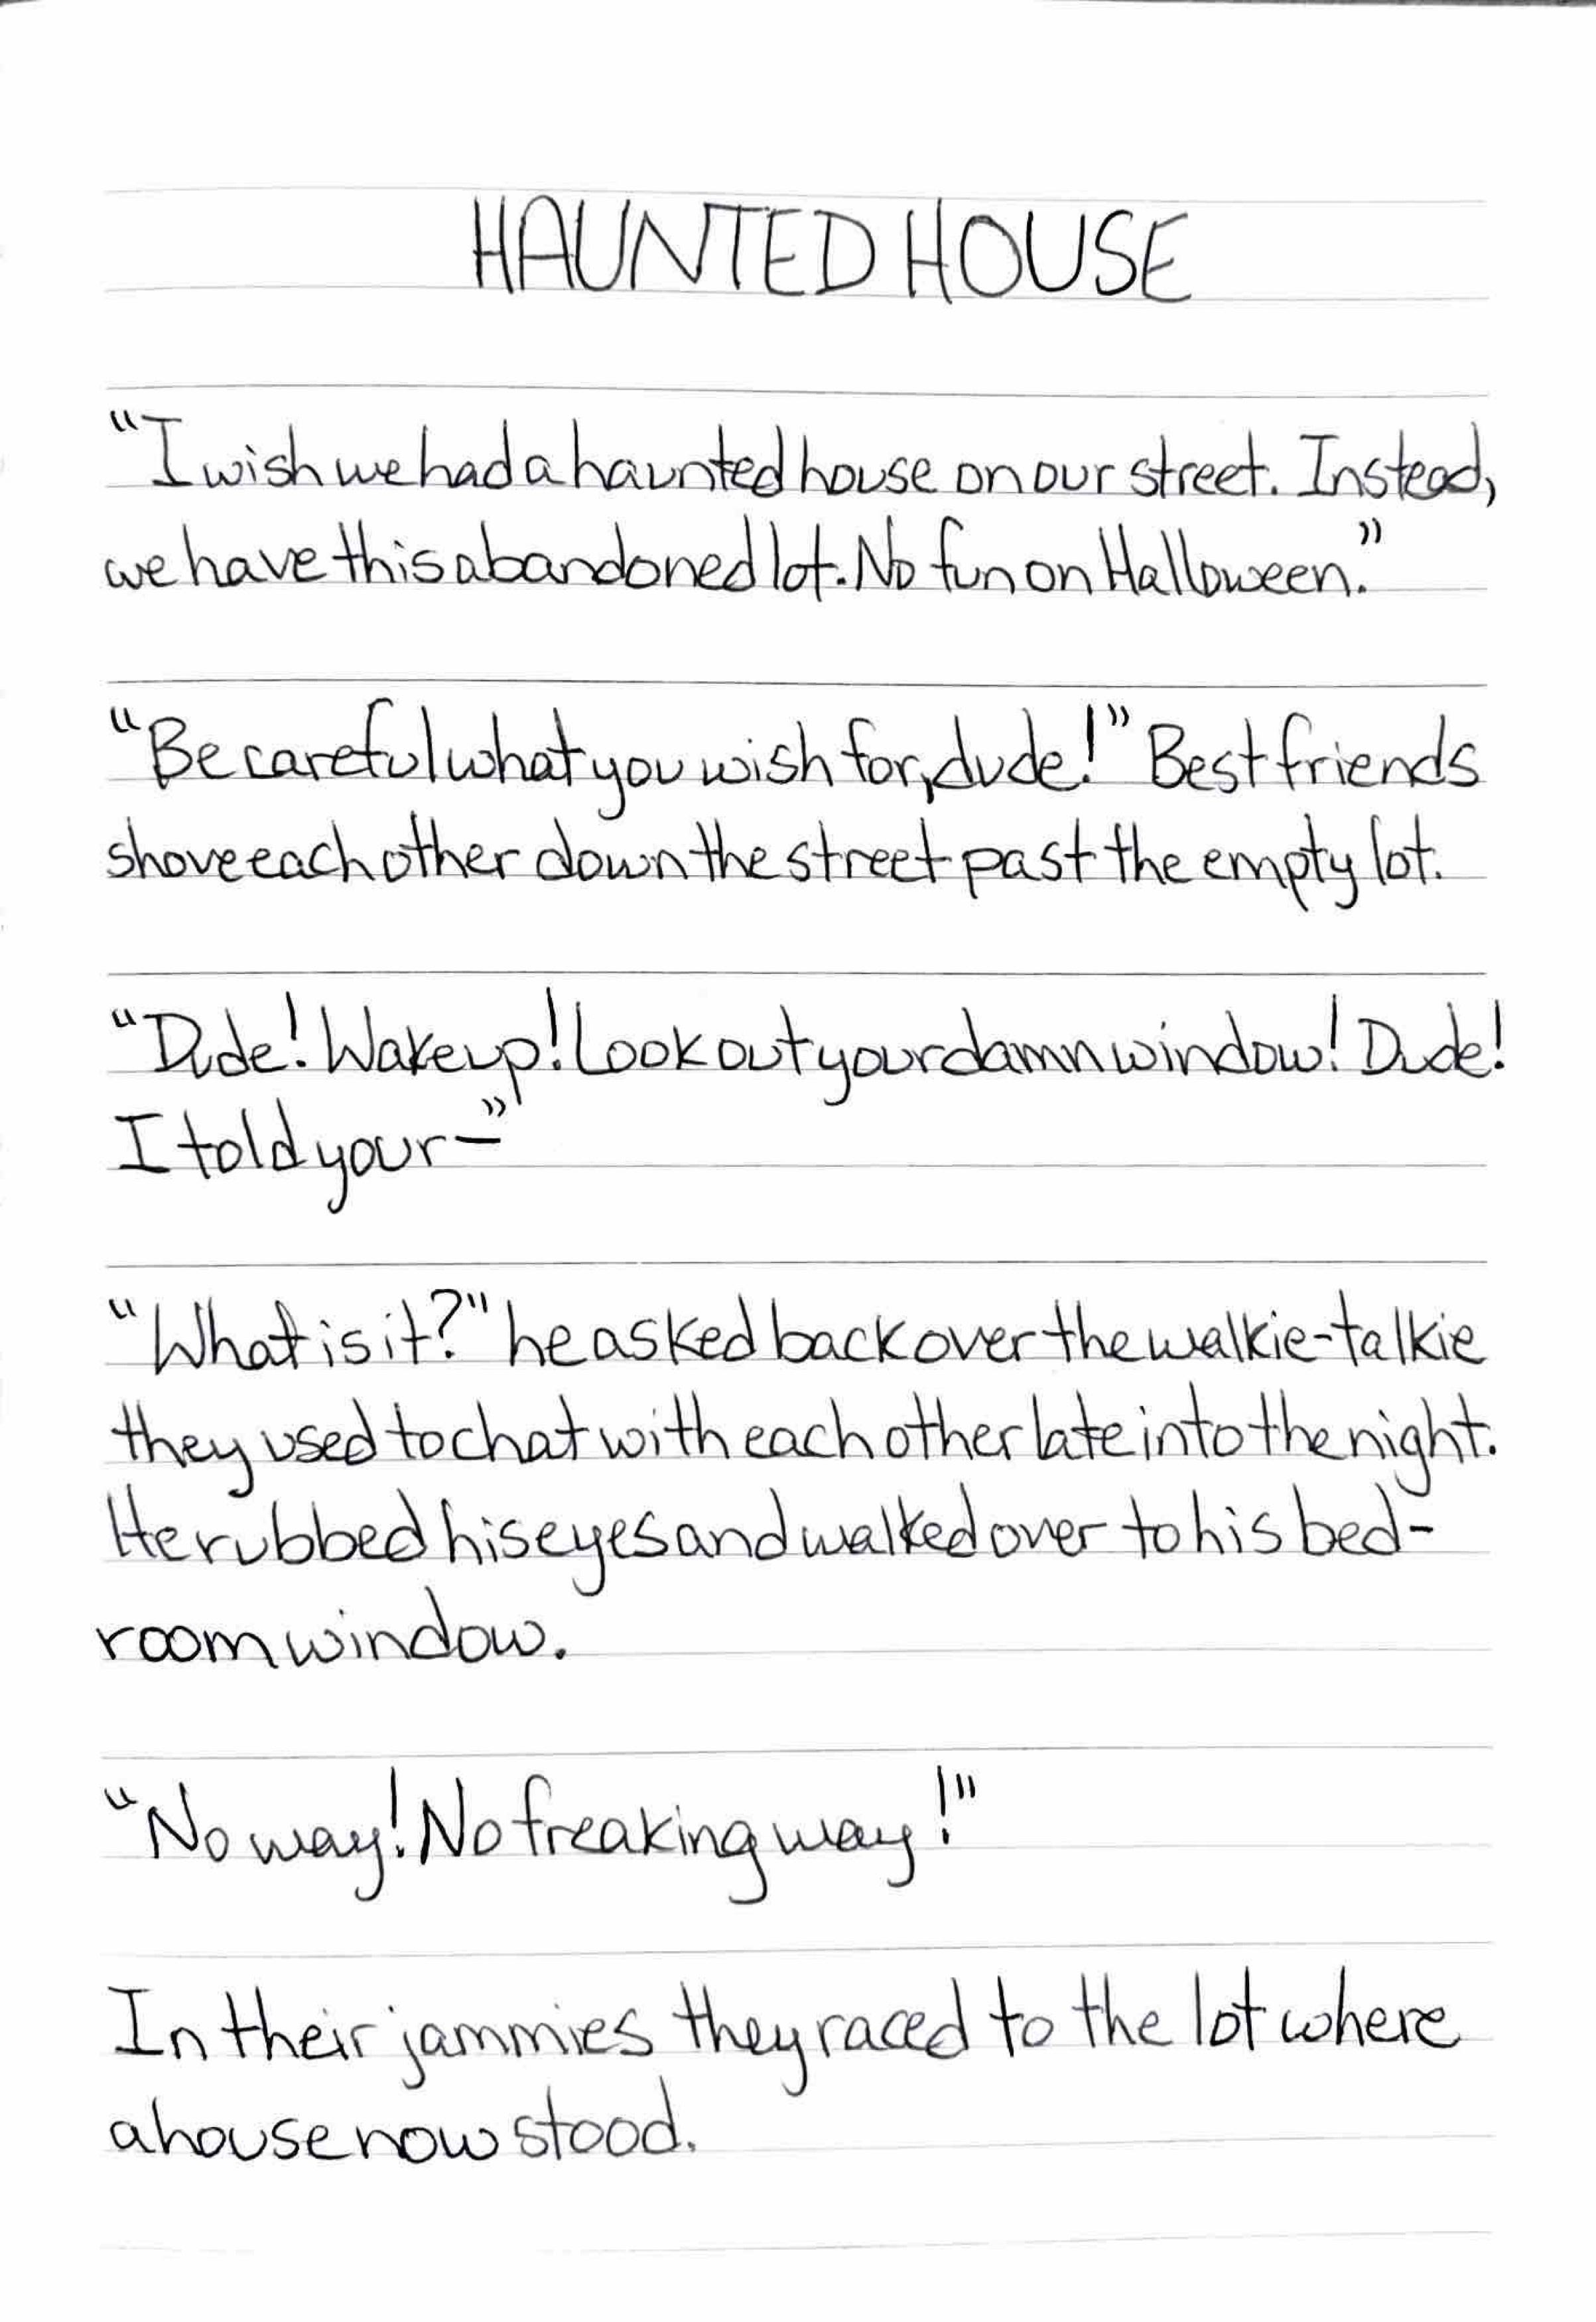 HAUNTED HOUSE
“I wish we had a haunted house on our street. Instead,
we have this abandoned lot. No fun on Halloween.”
“Be careful what you wish for, dude!” Best friends
shove each other down the street past the empty lot.
“Dude! Wake up! Look out your damn window! Dude!
I told your—”
“What is it?” he asked back over the walkie-talkie
they used to chat with each other late into the night.
He rubbed his eyes and walked over to his bed-
room window.
“No way! No freaking way!”
In their jammies they raced to the lot where
a house now stood.